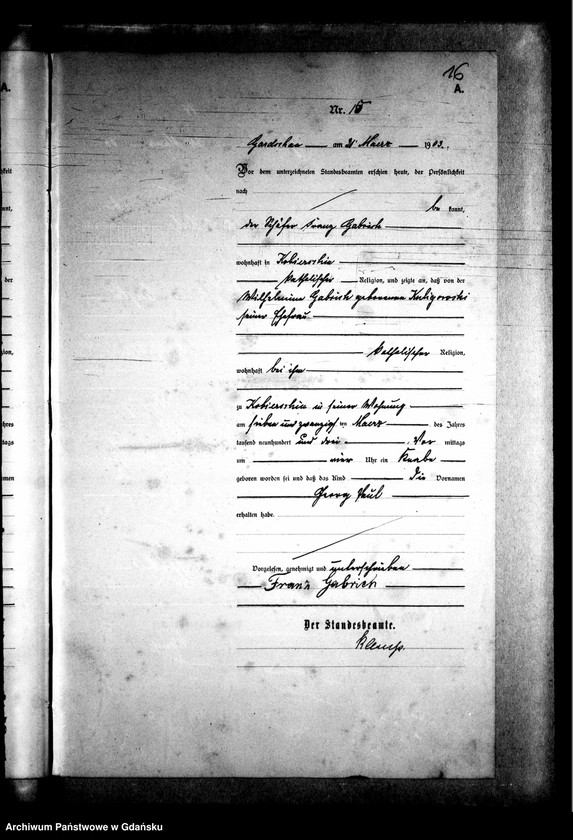 16
A.
A.
Nr. 15
Gardschau am 31 Maerz 1903.
Vor dem unterzeichneten Standesbeamten erschien heute, der Persönlichkeit
nach
be kannt,
der Schäfer Franz Gabrich
wohnhaft in Kobierschin
katholischer Religion, und zeigte an, daß von der
Wilhelmine Gabrich geborenen
seiner Ehefrau
katholischer Religion,
wohnhaft bei ihm
zu Kobierschin in seiner Wohnung
am sieben und zwanzigs ten Maerz des Jahres
tausend neunhundert und drei Vor mittags
um vier Uhr ein Knabe
geboren worden sei und daß das Kind die Vornamen
Georg Paul
erhalten habe.
Vorgelesen, genehmigt und unterschrieben
Franz Gabrich
Der Standesbeamte.
Archiwum Państwowe w Gdańsku